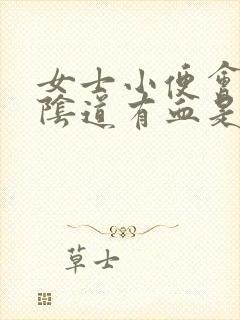 女士小便會
陰道有血是
草士